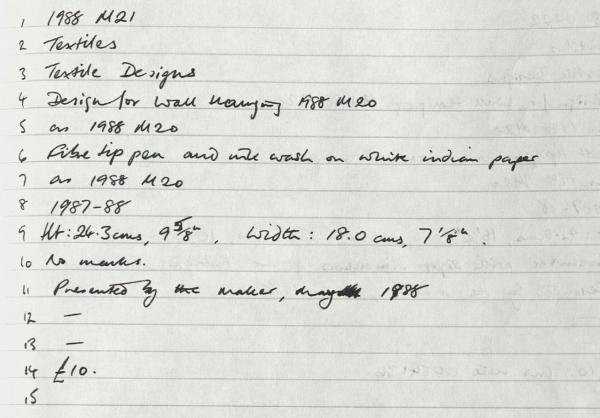 1 1988 M21
2 Textiles
3 Textile Designs
4 Design for wall hanging 1988 M20
5 as 1988 M20
6 Fibre tip pen and ink wash on white indian paper
7 as 1988 M20
8 1987-88
9 Ht: 24.3 cms, 9 5/8". Width: 18.0 cms, 7 1/8".
10 No marks.
11 Presented by the maker, may 1988
12 —
13 —
14 £10.
15